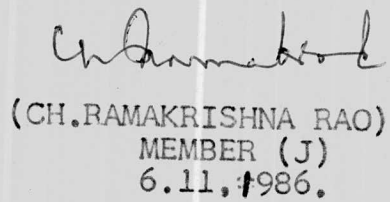 (CH.RAMAKRISHNA RAO)
MEMBER (J)
6.11.1986.